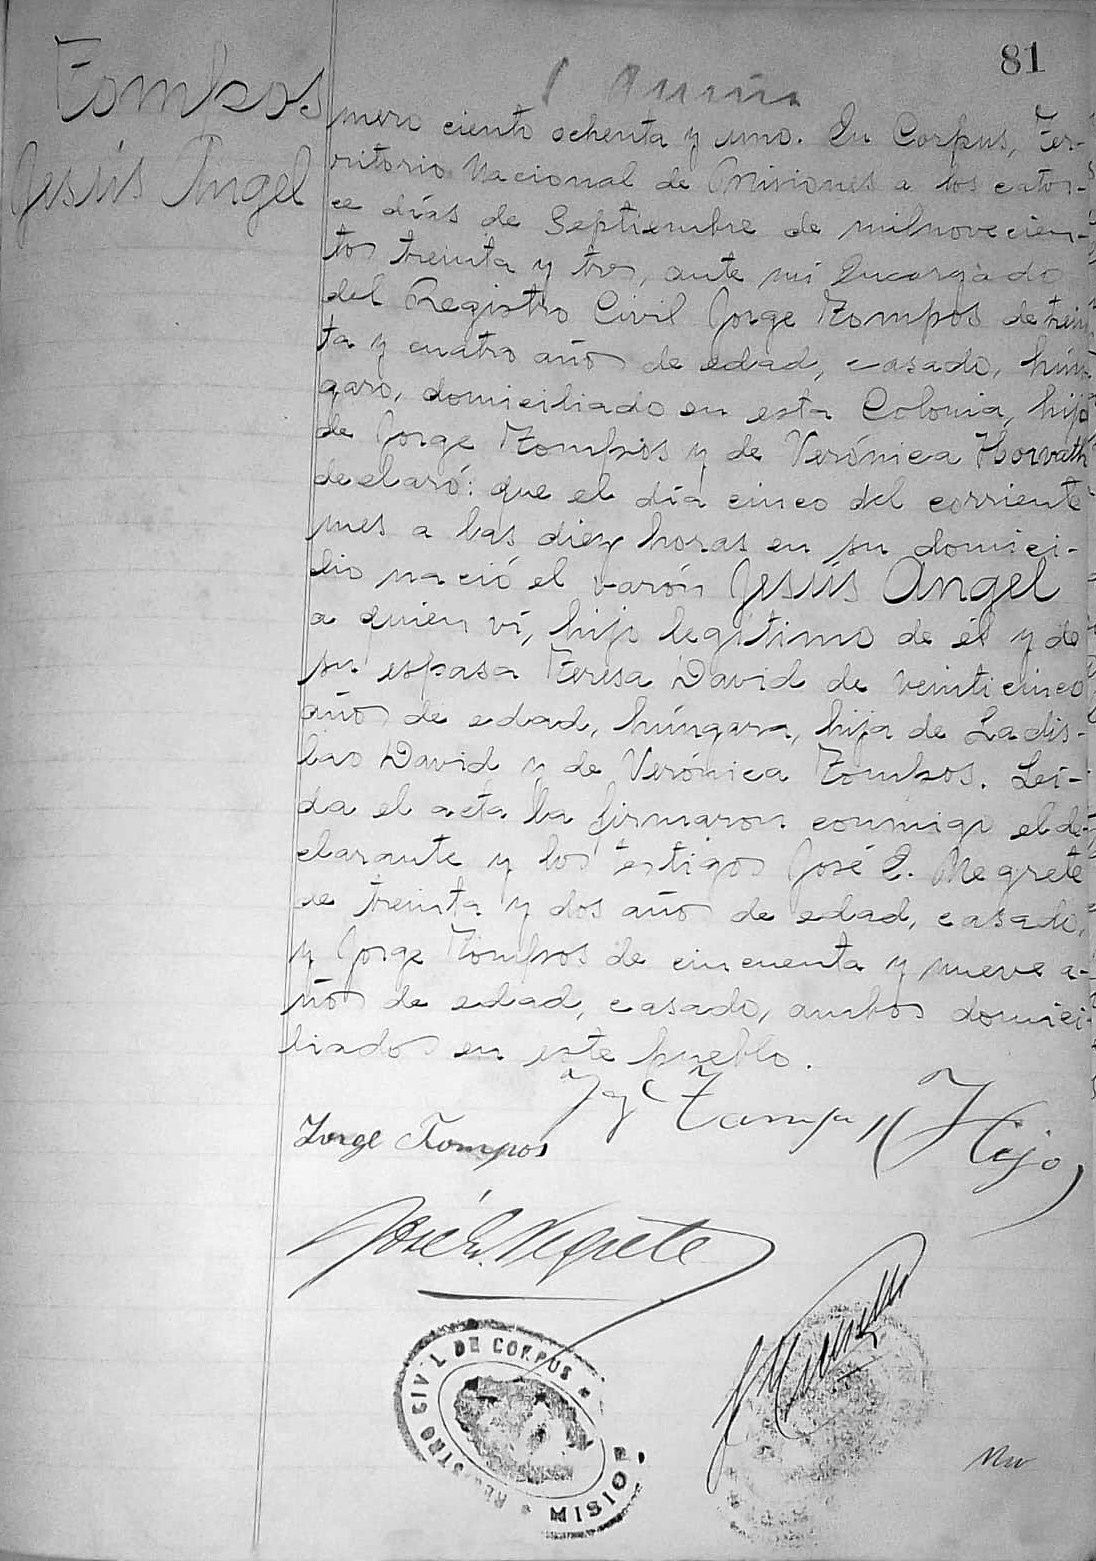 81
Tompos
Jesús Angel
mero ciento ochenta y uno. En Corpus, Ter-
ritorio Nacional de Misiones a los cator-
ce días de Septiembre de milnovecien-
tos treinta y tres, ante mi Encargado
del Registro Civil Jorge Tompos de trein
ta y cuatro años de edad, casado, hún
garo, domiciliado en esta Colonia, hijo
de Jorge Tompos y de Verónica Horvath
declaró: que el día cinco del corriente
mes a las diez horas en su domici-
lio nació el varón Jesús Angel
a quien ví, hijo legítimo de él y de
su esposa Teresa David de veinticinco
años de edad, húngara, hija de Ladis-
lao David y de Verónica Tompos. Leí-
da el acta la firmaron conmigo el de-
clarante y los testigos José E. Negrete
de treinta y dos años de edad, casado,
y Jorge Tompos de cincuenta y nueve a-
ños de edad, casado, ambos domici-
liados en este pueblo.
Hijo
Jorge Tompos
José E. Negrete
REGISTRO CIVIL DE CORPUS
MISIONE